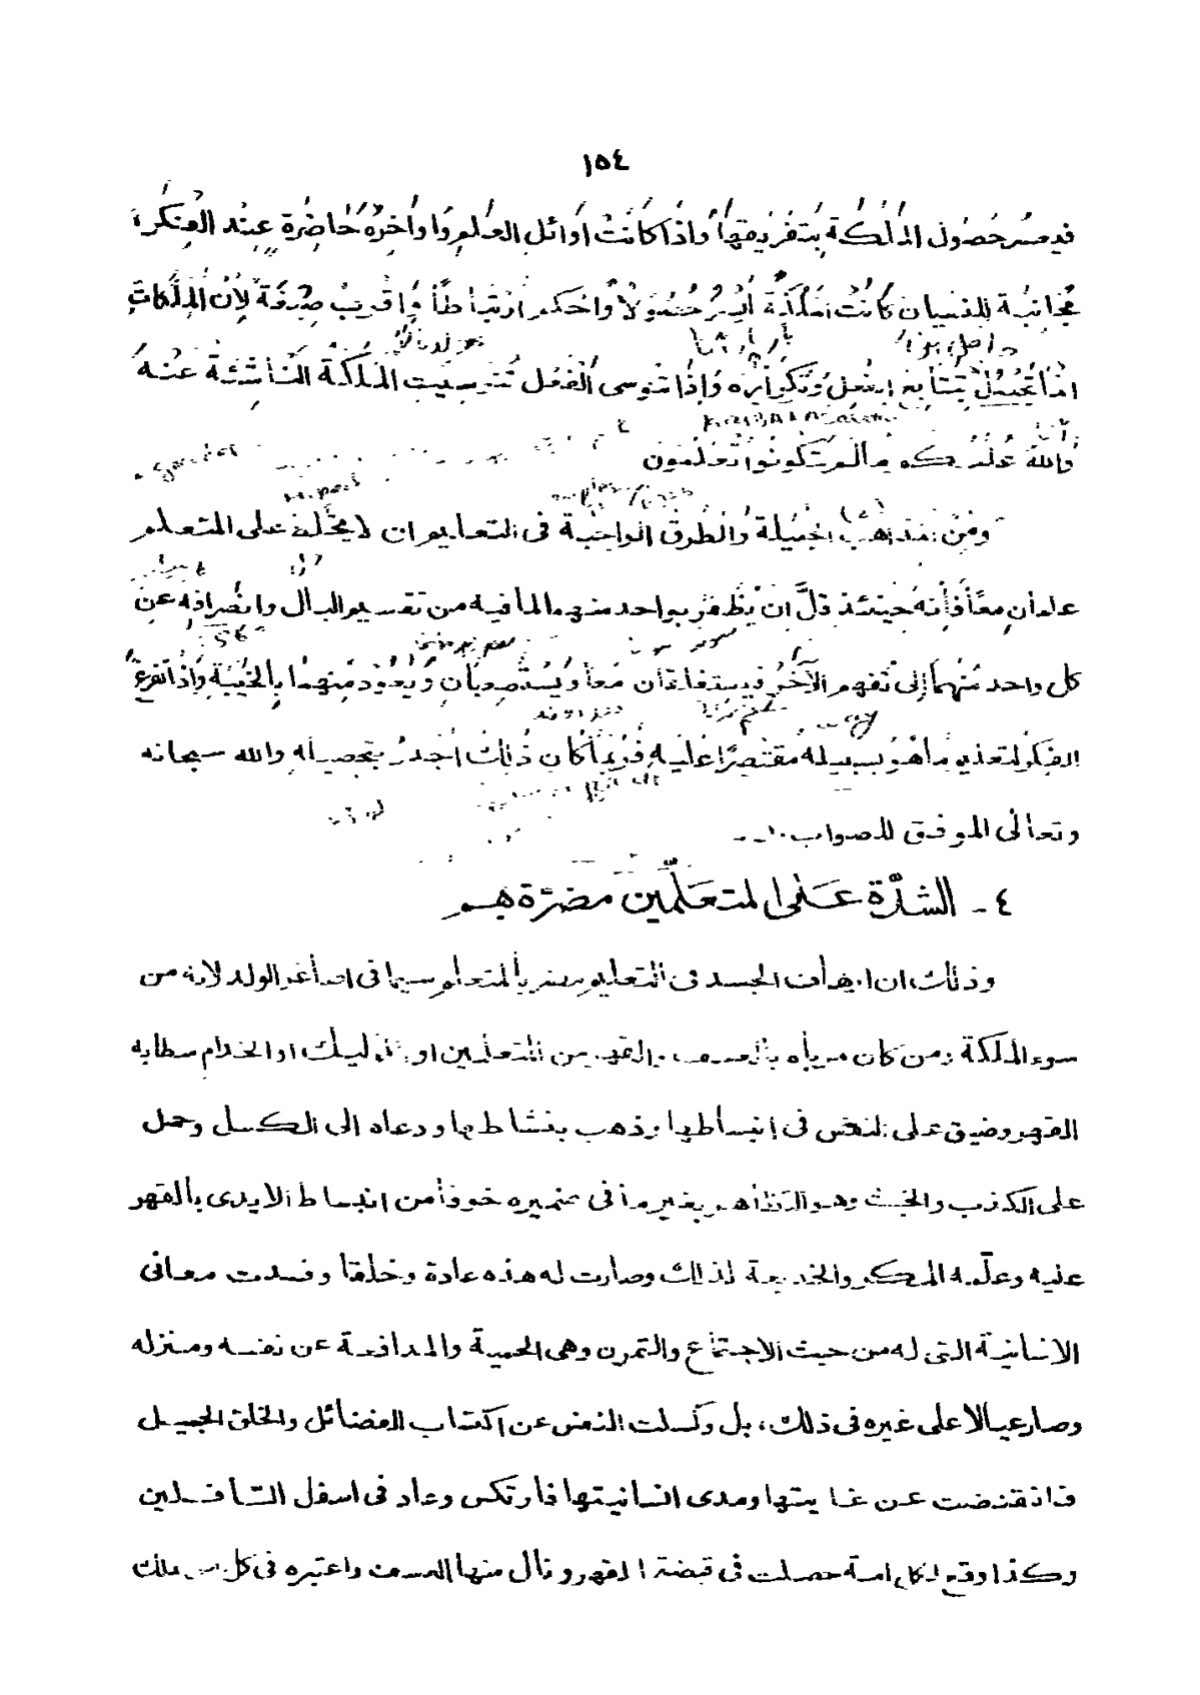 ١٥٤
فيعسر حصول الملكة بتفريقها واذا كانت اوائل العلم واواخره حاضرة عند الفكرة
مجانبة للنسيان كانت الملكة ايسر حصولا واحكم ارتباطا واقرب صبغة لان الملكات
انما تحصل بتتابع الفعل وتكراره واذا تنوسى الفعل تنوسيت الملكة الناشئة عنه
والله علمكم ما لم تكونوا تعلمون
ومن المذاهب الجميلة والطرق الواجبة فى التعليم ان لا يخلط على المتعلم
علمان معا فانه حينئذ قل ان يظفر بواحد منهما لما فيه من تقسيم البال وانصرافه عن
كل واحد منهما إلى تفهم الآخر فيستغلقان معا ويستصعبان ويعود منهما بالخيبة واذا تفرغ
الفكر لتعليم ما هو بسبيله مقتصرا عليه فربما كان ذلك اجدر بتحصيله والله سبحانه
وتعالى الموفق للصواب ـ
٤ - الشدّة على المتعلّمين مضرّة بهم
وذلك ان ارهاف الجسد فى التعليم مضر بالمتعلم سيما فى اصاغر الولد لانه من
سوء الملكة ومن كان مرباه بالعسف والقهر من المتعلمين او المماليك او الخدام سطا به
القهر وضيق على النفس فى إنبساطها وذهب بنشاطها ودعاه الى الكسل وحمل
على الكذب والخبث وهو التظاهر بغير ما فى ضميره خوفا من انبساط الايدى بالقهر
عليه وعلّمه المكر والخديعة لذلك وصارت له هذه عادة وخلقا وفسدت معانى
الانسانية التى له من حيث الاجتماع والتمرن وهى الحمية والمدافعة عن نفسه ومنزله
وصار عيالا على غيره فى ذلك، بل وكسلت النفس عن اكتساب الفضائل والخلق الجميل
فانقبضت عن غايتها ومدى انسانيتها فارتكس وعاد فى اسفل السّافلين
وكذا وقع لكل امة حصلت فى قبضة القهر ونال منها العسف واعتبره فى كل من ملك